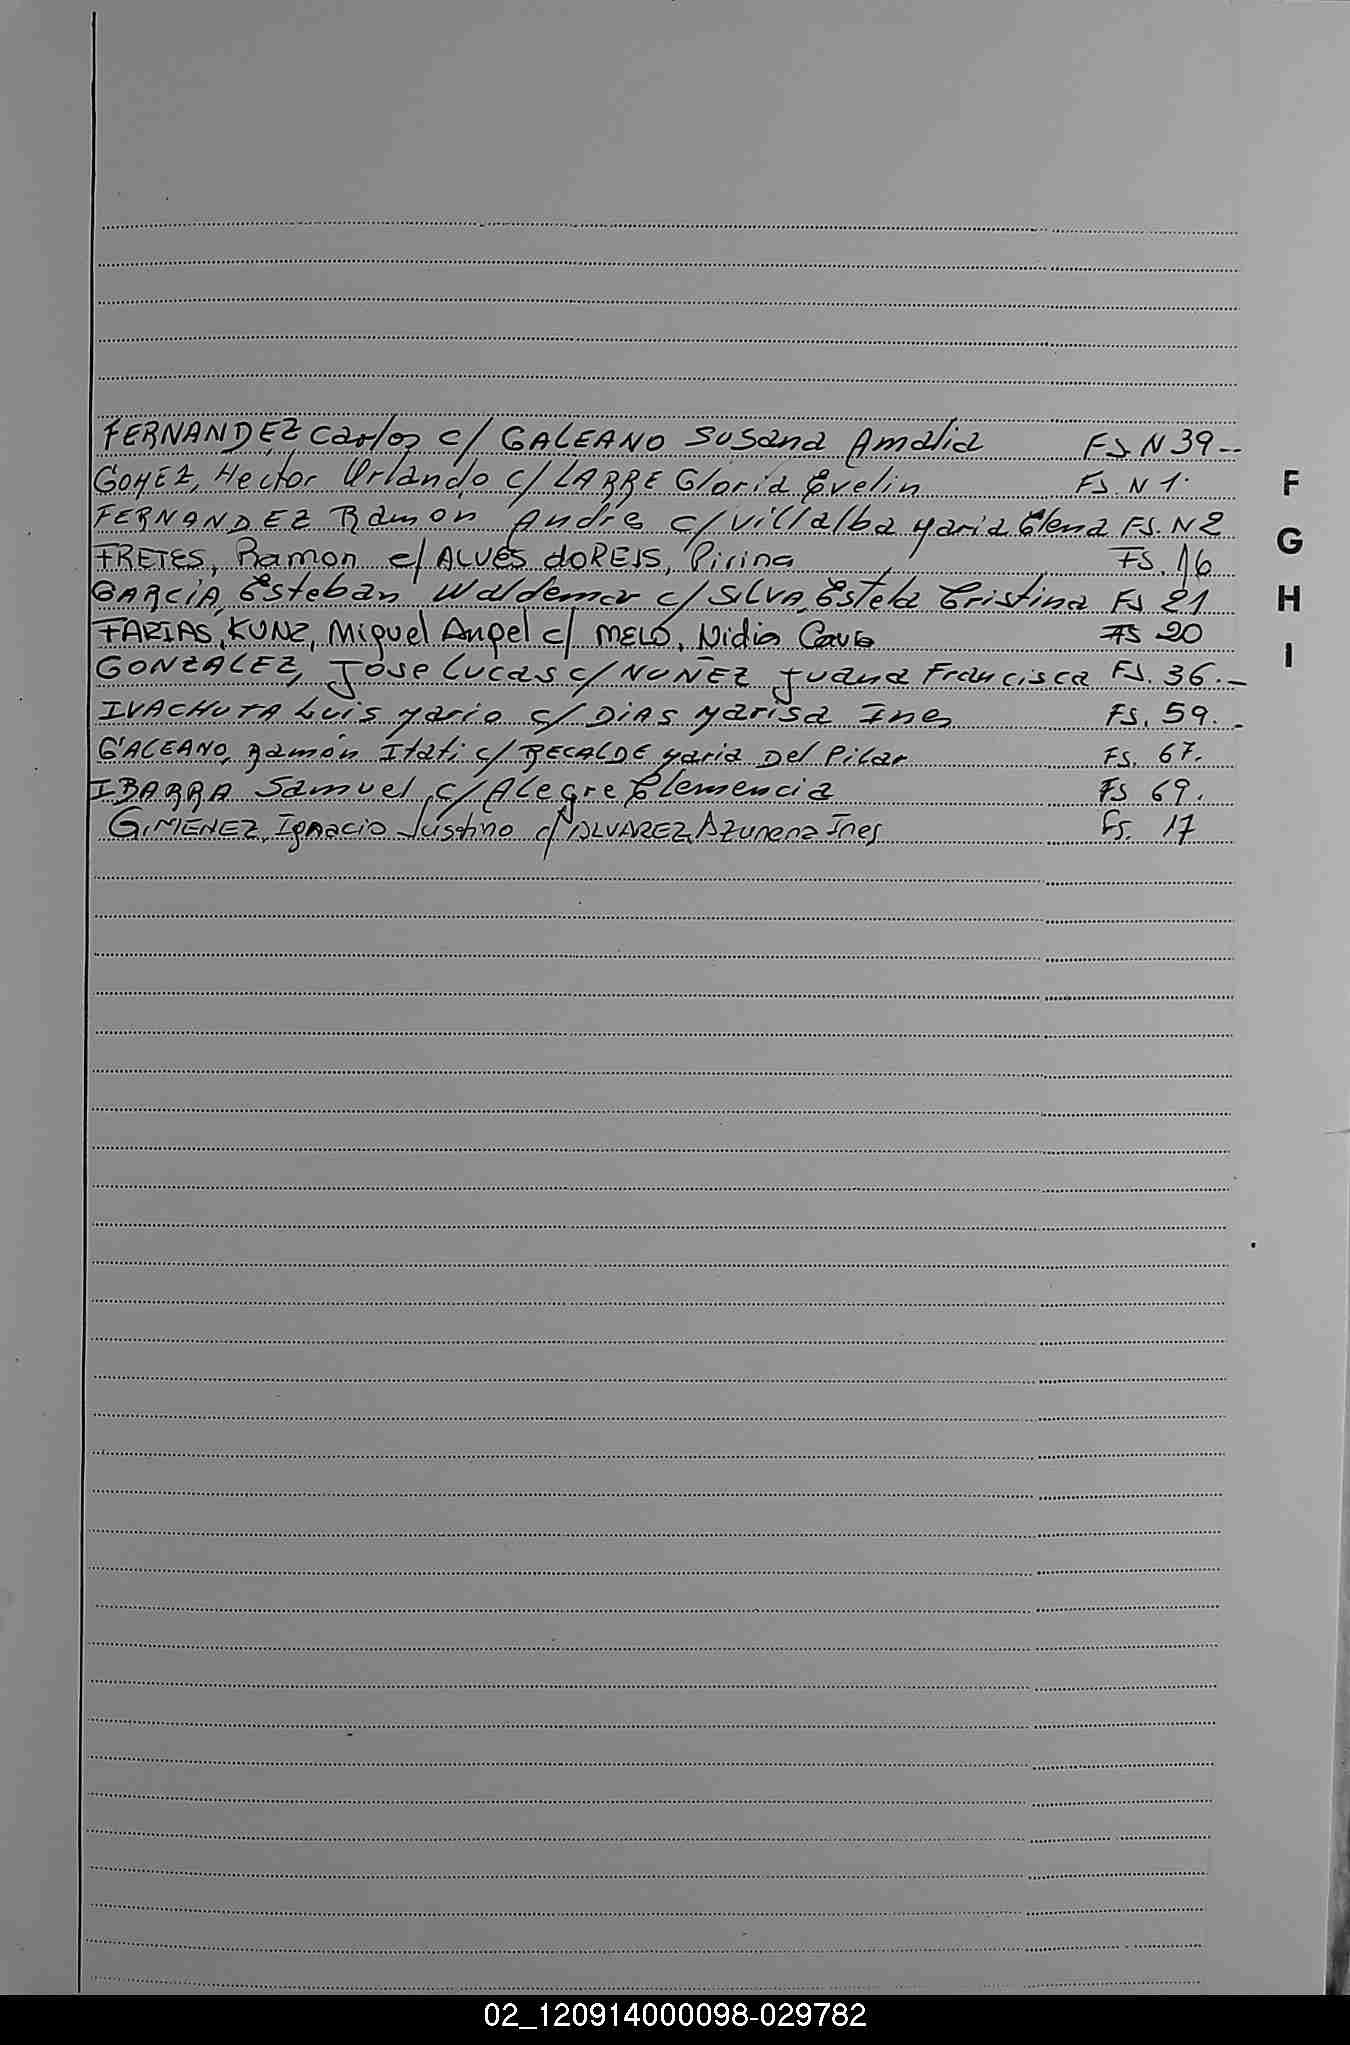 FERNANDEZ Carlos c/ GALEANO Susana Amalia FS N 39--
GOMEZ, Hector Orlando c/ LARRE Gloria Evelin FS. N 1.
FERNANDEZ Ramon Andre c/ Villalba Maria Elena FS. N 2
FRETES, Ramon c/ ALVES doREIS, Pirina FS. 16
GARCÍA, Esteban Waldemar c/ SILVA, Estela Cristina FS 21
FARIAS, KUNZ, Miguel Angel c/ MELO, Nidia FS 20
GONZALEZ, Jose Lucas c/ NUÑEZ Juana Francisca FS. 36.-
IVACHUTA Luis Mario c/ DIAS Marisa Ines FS. 59.-
GALEANO, Ramón Itati c/ RECALDE Maria Del Pilar FS. 67.
IBARRA Samuel, c/ Alegre Clemencia FS 69.
GIMÉNEZ, Ignacio Justino c/ ALVAREZ, Azunena Ines Fs. 17
F
G
H
I
02_120914000098-029782